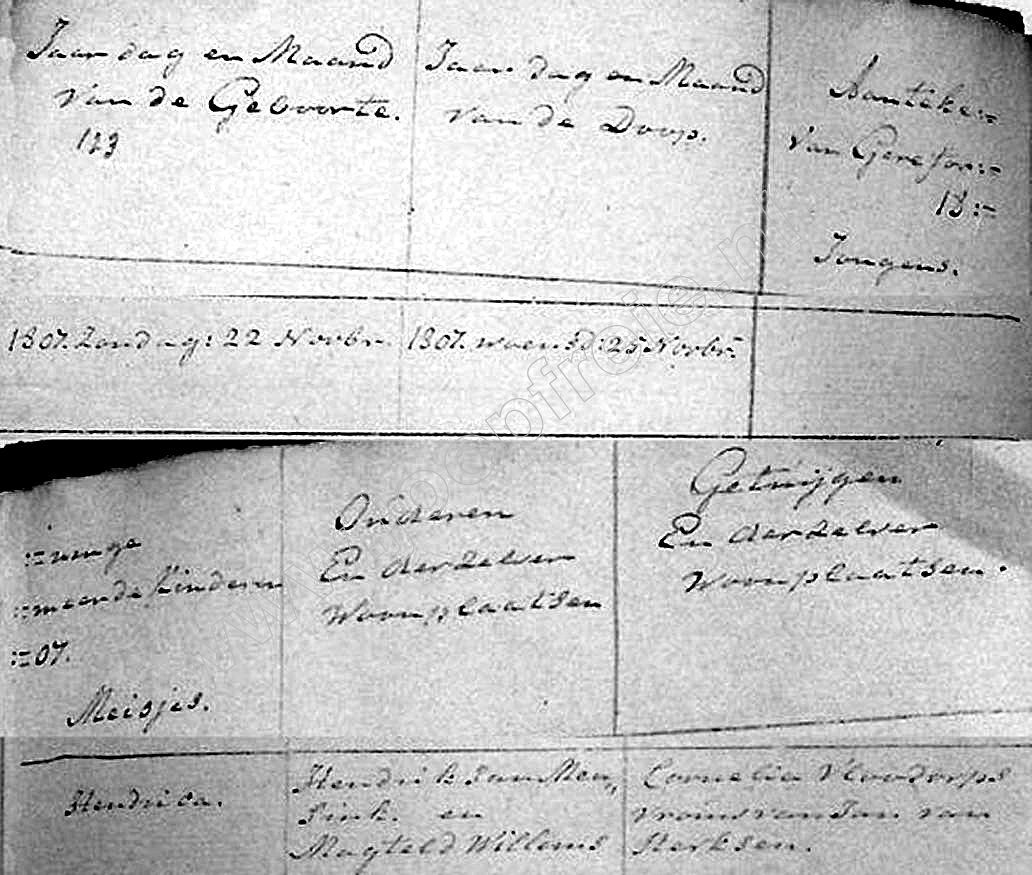 Jaar dag en Maand
van de Geboorte.
Jaar dag en Maand
van de Doop.
Aanteke:=
van Gerefor:=
18:=
Jongens.
1807. Zondag: 22 Novbr.
1807. woensd: 25 Novbr.
:=ninge
:=meerde kinderen
:=07.
Meisjes.
Ouderen
En derzelver
woonplaatsen
Getuijgen
En derzelver
woonplaatsen.
Hendrica.
Hendrik Jan Men„
sink. en
Magteld Willems
Cornelia Vloodorps
vrouw van Jan van
Sterksen.